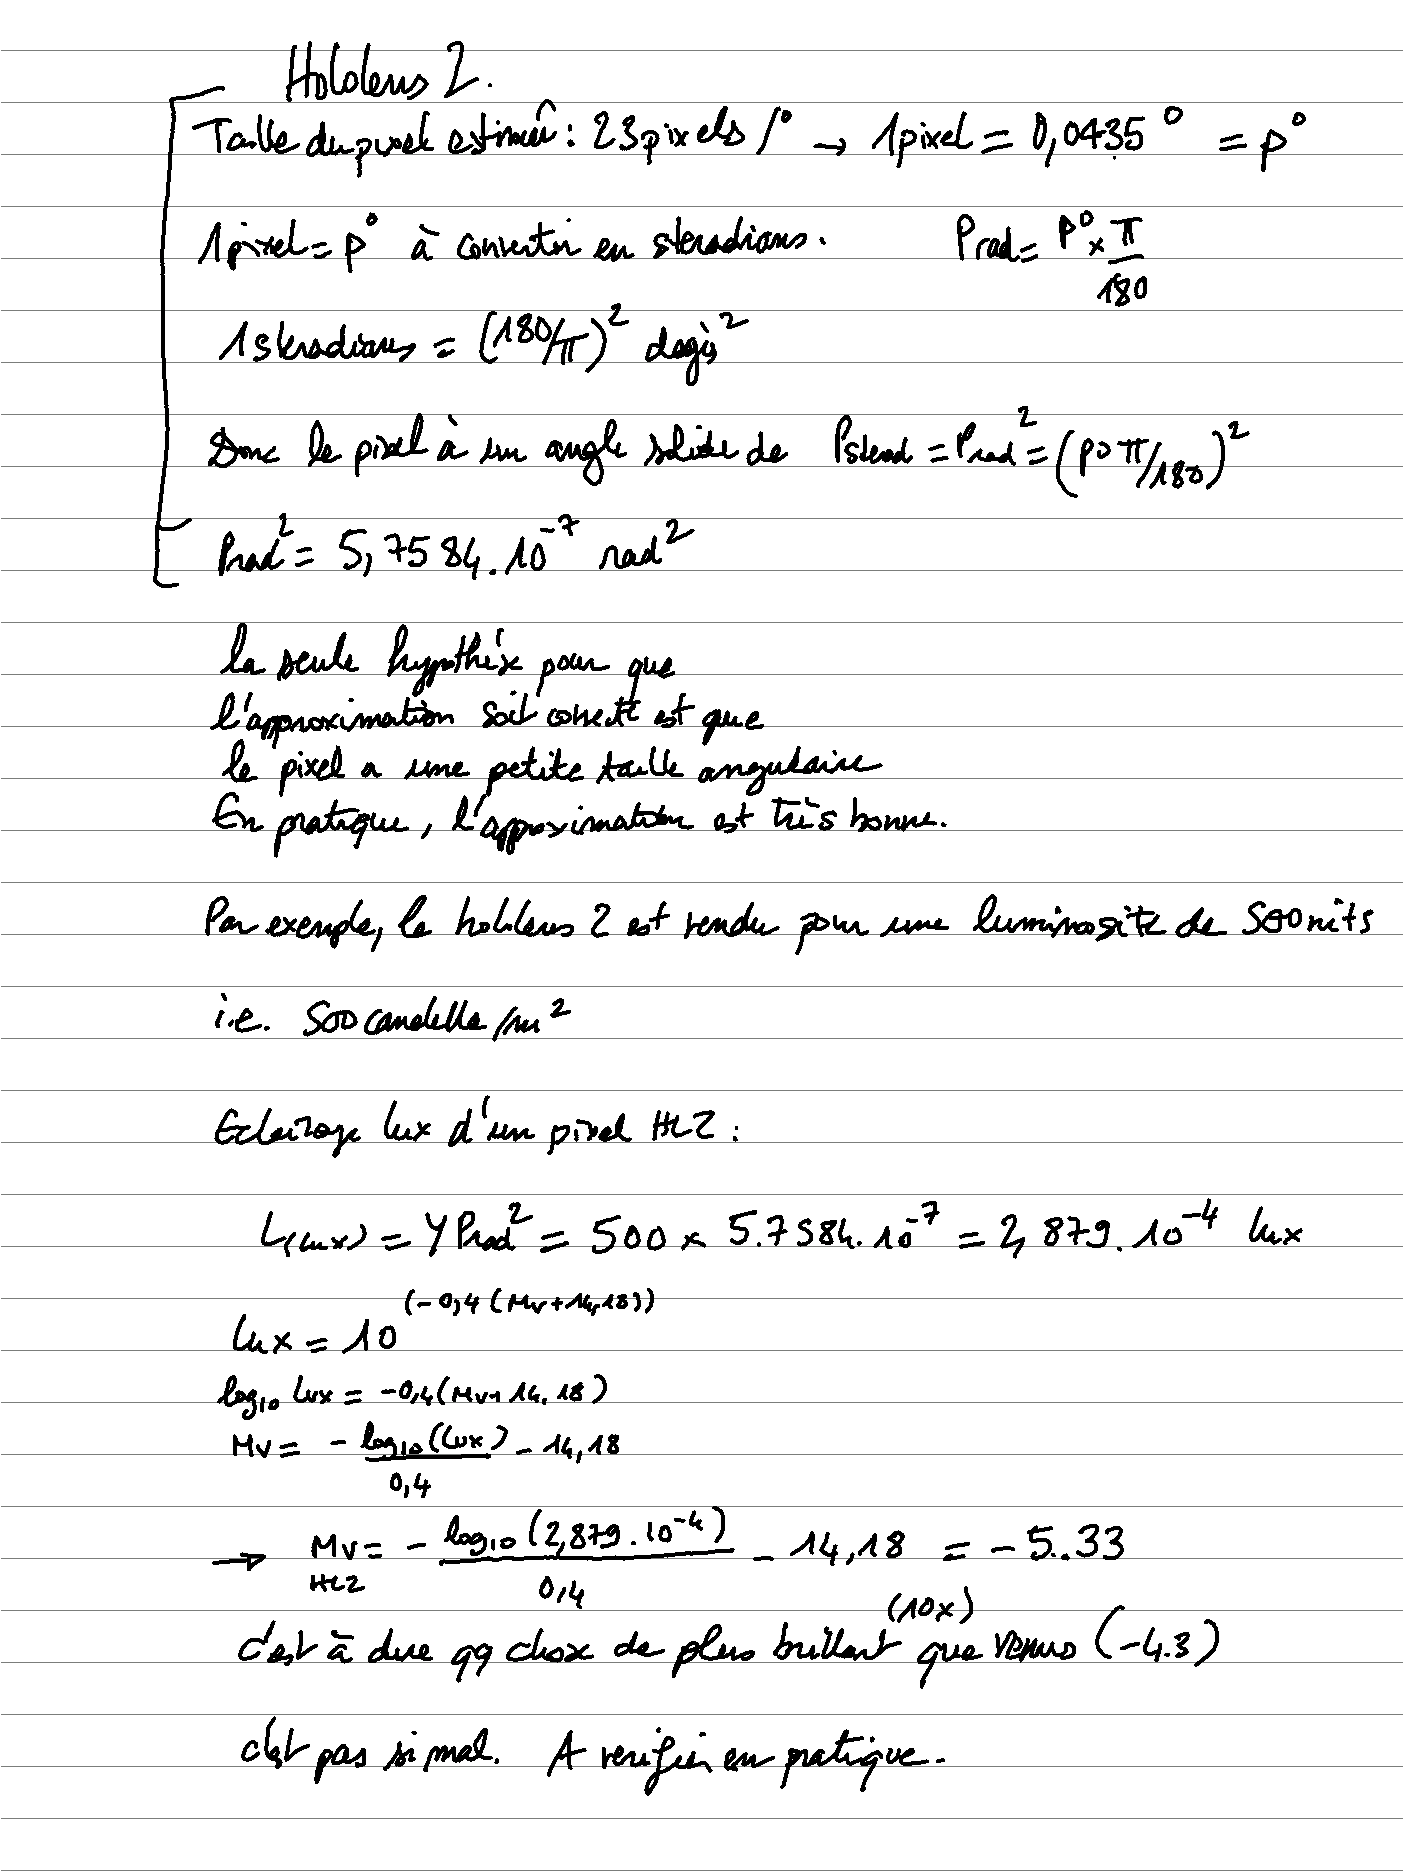 Hololens 2.
Taille du pixel estimée : 23 pixels /° → 1 pixel = 0,0435° = p°
1 pixel = p° à convertir en steradians. Prad = p° × π/180
1 steradians = (180/π)² degrés²
Donc le pixel à un angle solide de Psterad = Prad² = (p° π/180)²
Prad² = 5,7584.10⁻⁷ rad²
la seule hypothèse pour que
l'approximation soit correcte est que
le pixel a une petite taille angulaire
En pratique, l'approximation est très bonne.
Par exemple, le hololens 2 est vendu pour une luminosité de 500 nits
i.e. 500 candella /m²
Eclairage lux d'un pixel HL2 :
L(lux) = Y Prad² = 500 × 5.7584.10⁻⁷ = 2,879.10⁻⁴ lux
lux = 10^(-0,4 (Mv+14,18))
log₁₀ Lux = -0,4(Mv+14,18)
Mv = - log₁₀(Lux)/0,4 - 14,18
→ Mv HL2 = - log₁₀(2,879.10⁻⁴)/0,4 - 14,18 = -5.33
c'est à dire qq chose de plus brillant (10x) que venus (-4.3)
c'est pas si mal. A verifier en pratique.